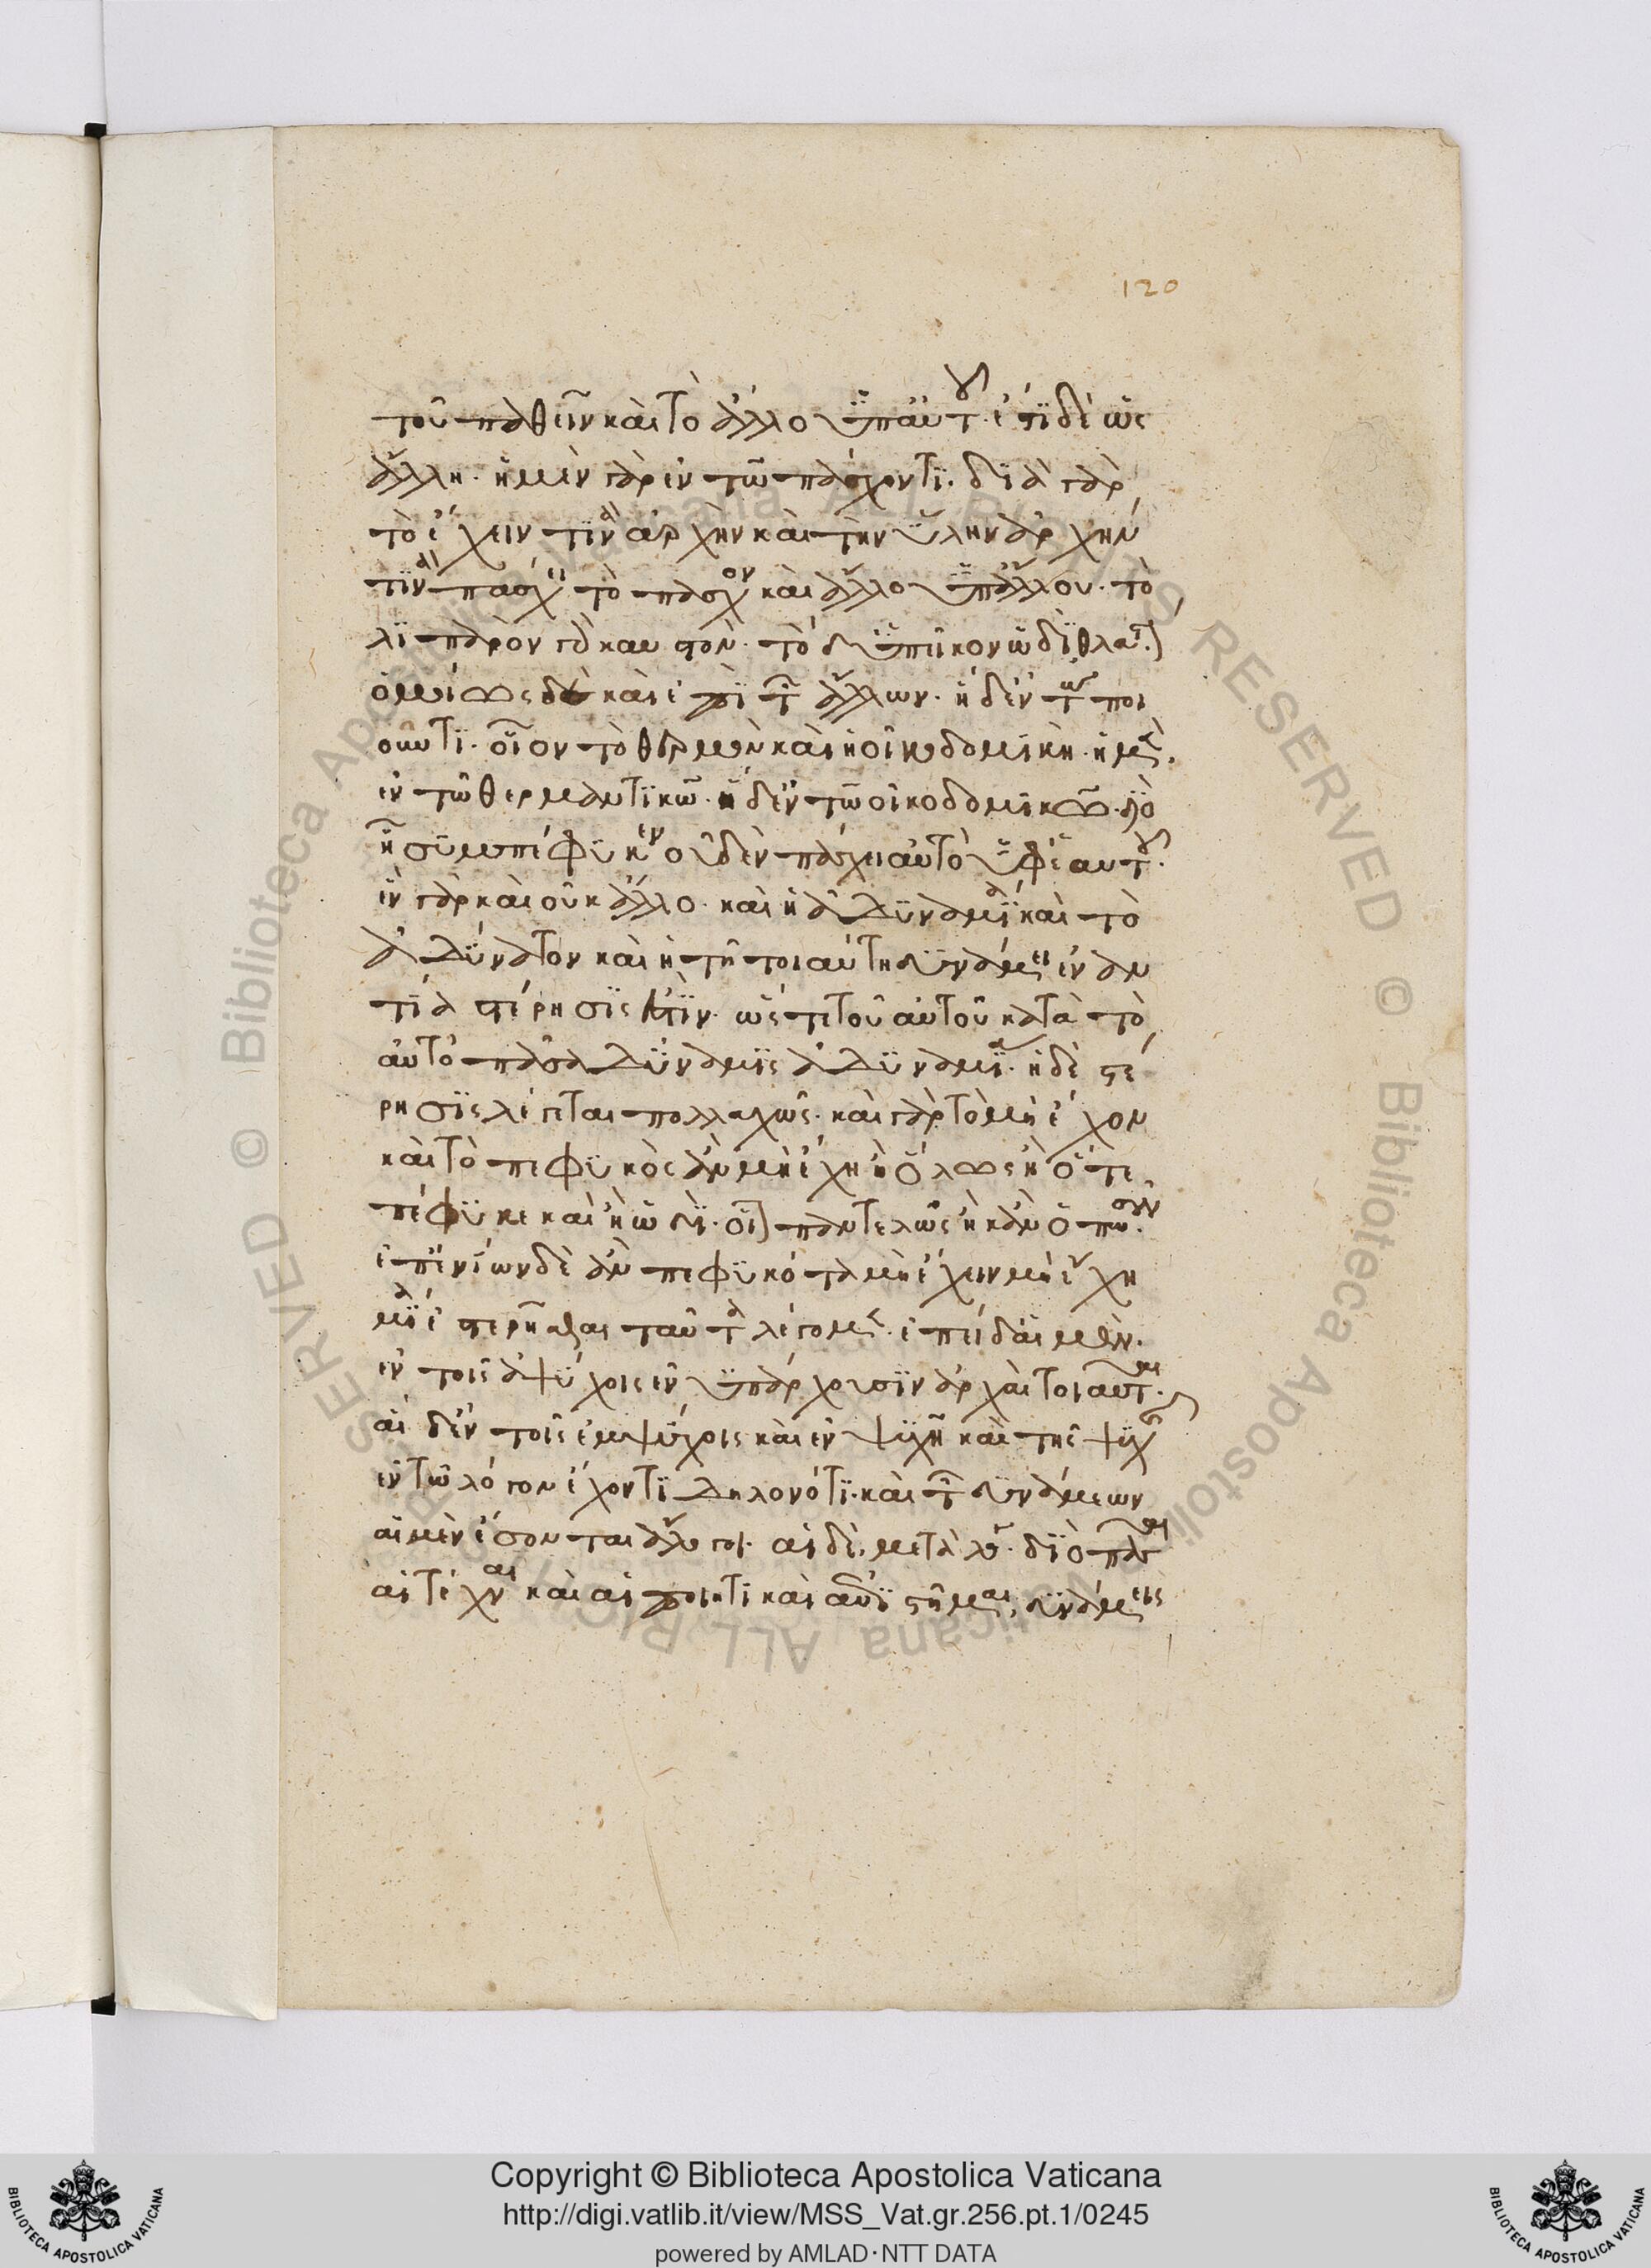 120
τοῦ παθεῖν καὶ τὸ ἄλλο ὑπ' αὐτοῦ. ἔστι δὲ ὡς
ἄλλη. ἡ μὲν γὰρ ἐν τῶ πάσχοντι. διὰ γὰρ
τὸ ἔχειν τινὰ ἀρχὴν καὶ τὴν ὕλην ἀρχήν
τινὰ πάσχει τὸ πάσχον καὶ ἄλλο ὑπ' ἄλλου. τὸ
λιπαρὸν γὰρ καυστόν. τὸ δ' ὑπεῖκον ὡδὶ θλαστόν
ὁμοίως δὲ καὶ ἐπὶ τῶν ἄλλων. ἡ δ' ἐν τῶ ποι
οῦντι. οἷον τὸ θερμὸν καὶ ἡ οἰκοδομική. ἡ μὲν
ἐν τῶ θερμαντικῶ. ἡ δ' ἐν τῶ οἰκοδομικῶ. διὸ
ἧ συμπέφυκεν οὐδὲν πάσχει αὐτὸ ὑφ' ἑαυτοῦ.
ἓν γὰρ καὶ οὐκ ἄλλο. καὶ ἡ ἀδυναμία καὶ τὸ
ἀδύνατον καὶ ἡ τῆ τοιαύτη δυνάμει ἐναν
τία στέρησίς ἐστιν. ὥστε τοῦ αὐτοῦ κατὰ τὸ
αὐτὸ πᾶσα δύναμις ἀδυναμία. ἡ δὲ στέ
ρησις λέγεται πολλαχῶς. καὶ γὰρ τὸ μὴ ἔχον
καὶ τὸ πεφυκὸς ἂν μὴ ἔχη ἢ ὅλως ἢ ὅτε
πέφυκε καὶ ἢ ὡδί. οἷον παντελῶς ἢ κἂν ὁπωσοῦν.
ἐπ' ἐνίων δὲ ἂν πεφυκότα μὴ ἔχειν μὴ ἔχη
βία ἐστερῆσθαι ταῦτα λέγομεν. ἐπεὶ δ' αἱ μὲν
ἐν τοῖς ἀψύχοις ἐνυπάρχουσιν ἀρχαὶ τοιαῦται.
αἱ δ' ἐν τοῖς ἐμψύχοις καὶ ἐν ψυχῆ καὶ τῆς ψυχῆς
ἐν τῶ λόγον ἔχοντι δηλονότι. καὶ τῶν δυνάμεων
αἱ μὲν ἔσονται ἄλογοι. αἱ δὲ μετὰ λόγου. διὸ πᾶσαι
αἱ τέχναι καὶ αἱ ποιητικαὶ αὐταὶ ἐπιστῆμαι, δυνάμεις
Copyright © Biblioteca Apostolica Vaticana
http://digi.vatlib.it/view/MSS_Vat.gr.256.pt.1/0245
powered by AMLAD·NTT DATA